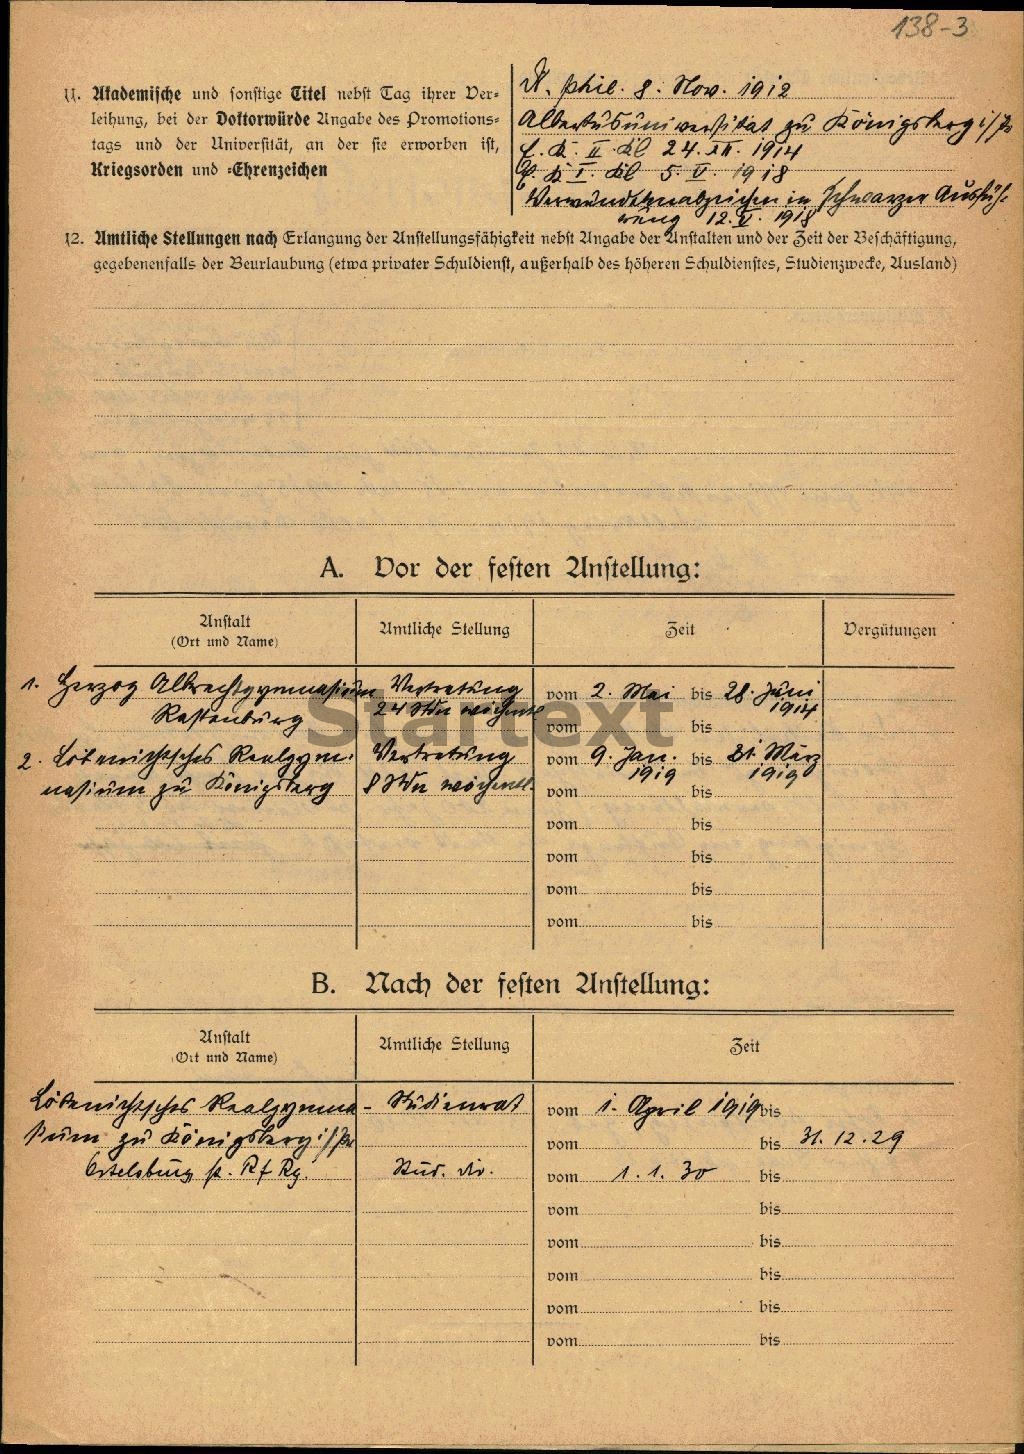 138-3
11. Akademische und sonstige Titel nebst Tag ihrer Ver-
leihung, bei der Doktorwürde Angabe des Promotions-
tags und der Universität, an der sie erworben ist,
Kriegsorden und -Ehrenzeichen
Dr. phil. 8. Nov. 1912
Albertusuniversität zu Königsberg i/Pr
E. K. II. Kl 24. XII. 1914
E. K I. Kl 5. V. 1918
Verwundetenabzeichen in schwarzer Ausfüh-
rung 12. V. 1918
12. Amtliche Stellungen nach Erlangung der Anstellungsfähigkeit nebst Angabe der Anstalten und der Zeit der Beschäftigung,
gegebenenfalls der Beurlaubung (etwa privater Schuldienst, außerhalb des höheren Schuldienstes, Studienzwecke, Ausland)
A. Vor der festen Anstellung:
Anstalt
(Ort und Name)
Amtliche Stellung
Zeit
Vergütungen
1. Herzog Albrechtgymnasium Vertretung vom 2. Mai bis 28. Juni
Rastenburg 24 Stdn wöchentl 1914
vom bis
2. Löbenichtsches Realgym- Vertretung vom 9. Jan. bis 31. März
1919 1919
nasium zu Königsberg 8 Stdn wöchentl. vom bis
vom bis
vom bis
vom bis
vom bis
Startext
B. Nach der festen Anstellung:
Anstalt
(Ort und Name)
Amtliche Stellung
Zeit
Löbenichtsches Realgymna- Studienrat vom 1. April 1919 bis
sium zu Königsberg i/Pr vom bis 31.12.29
Ortelsburg st. Rf Rg. Stud. dir. vom 1.1.30 bis
vom bis
vom bis
vom bis
vom bis
vom bis